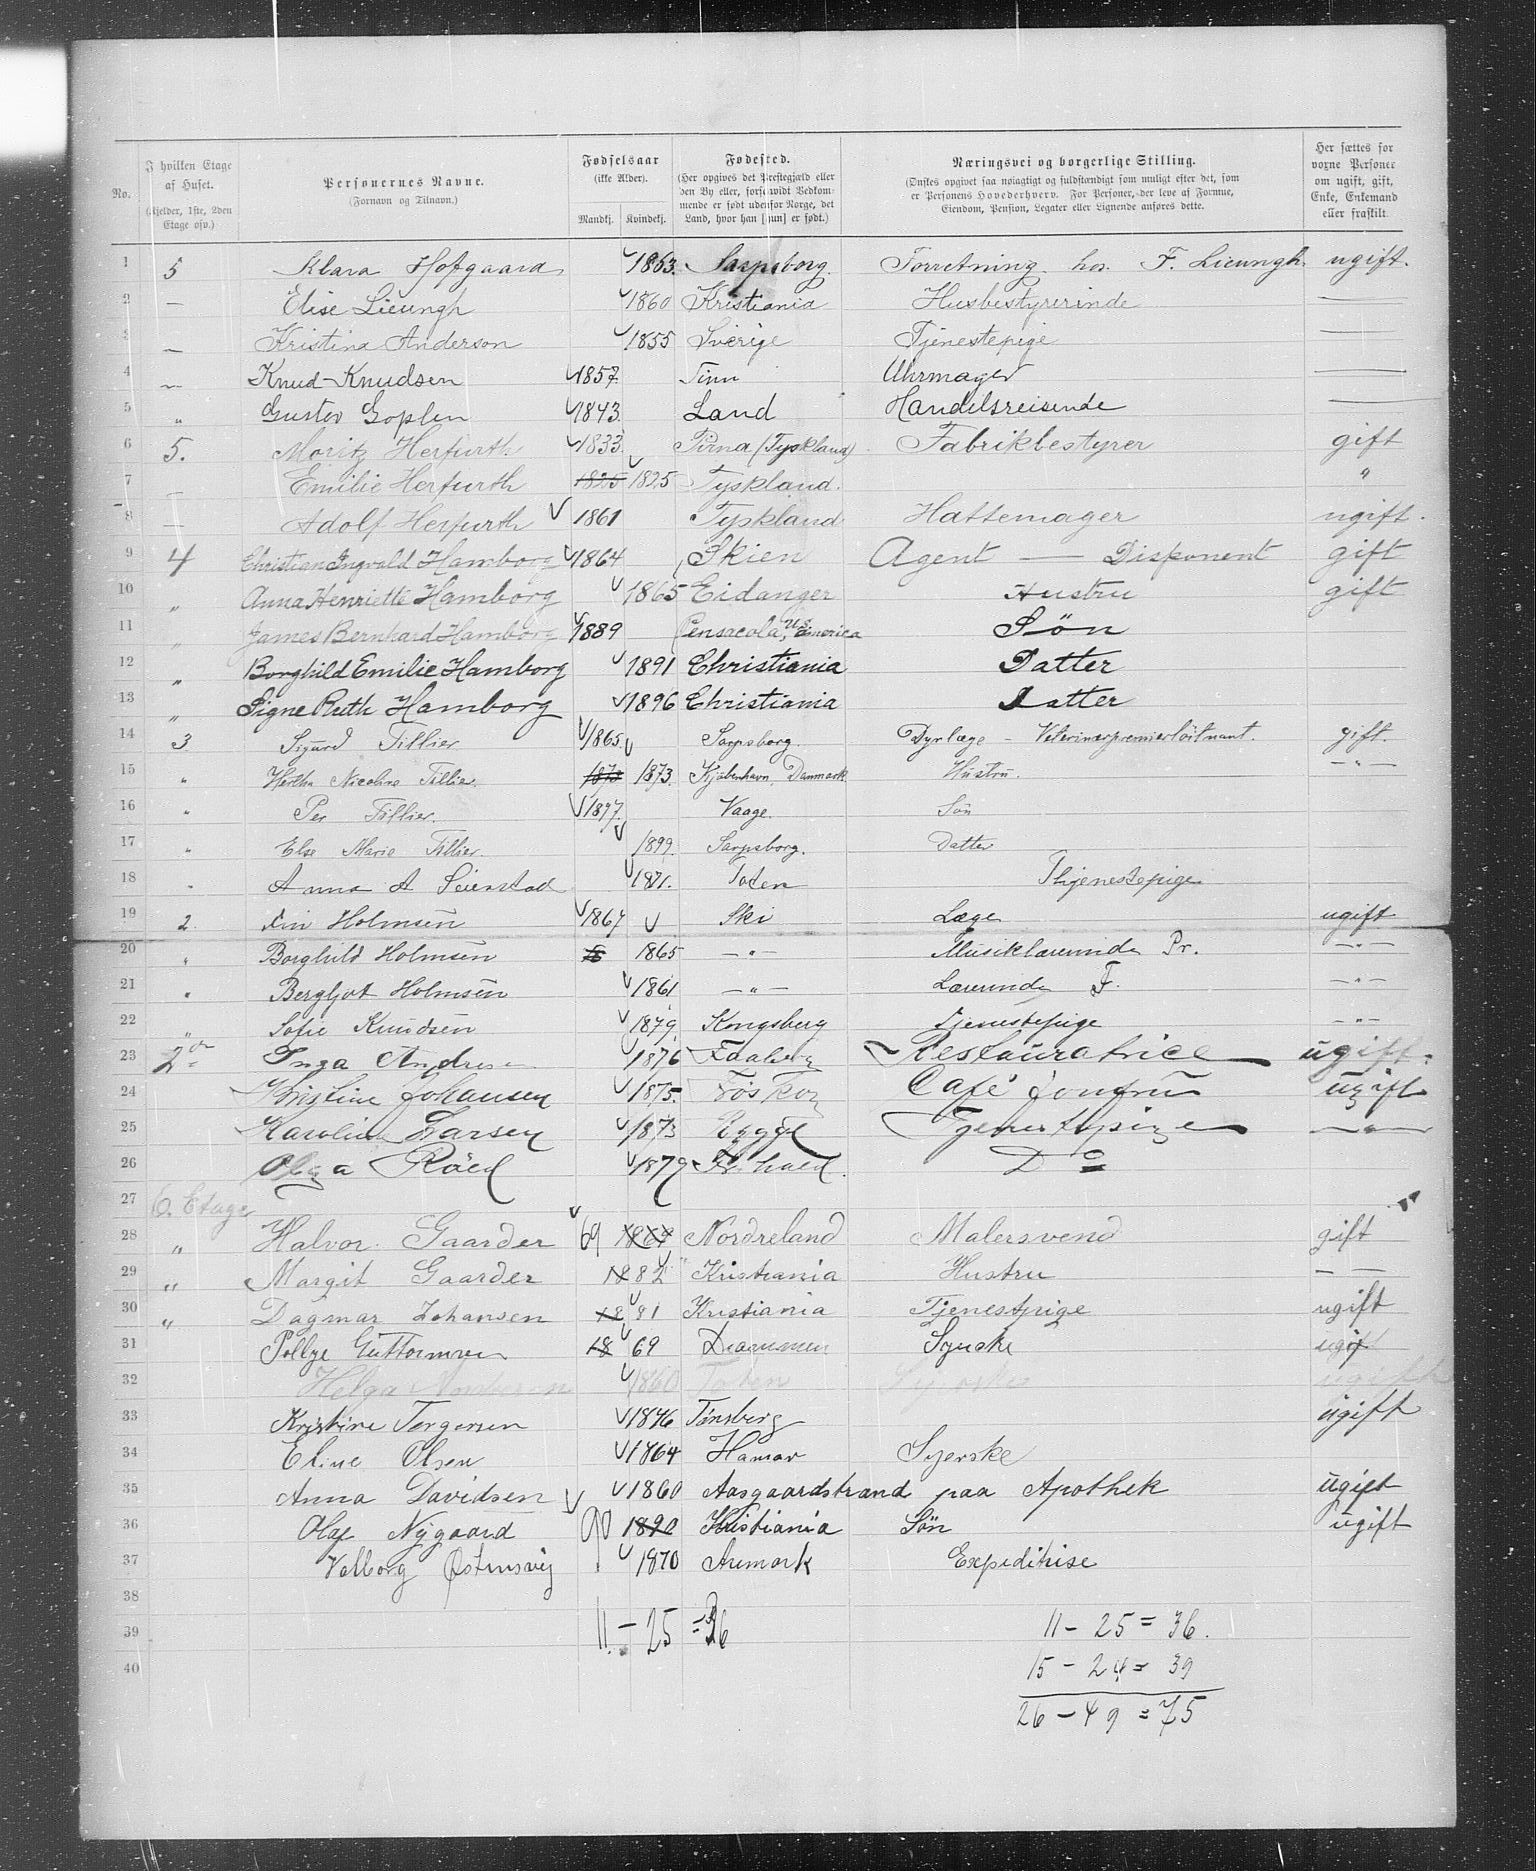 No.
I hvilken Etage af Huset. (Kjelder, 1ste, 2den Etage osv.)
Personernes Navne. (Fornavn og Tilnavn.)
Fødselsaar (ikke Alder). Mandkj. Kvindekj.
Fødested. (Her opgives det Prestegjæld eller den By eller, forsaavidt Vedkommende er født udenfor Norge, det Land, hvor han [hun] er født.)
Næringsvei og borgerlige Stilling. (Ønskes opgivet saa nøiagtigt og fuldstændigt som muligt efter det, som er Personens Hovederhverv. For Personer, der leve af Formue, Eiendom, Pension, Legater eller Lignende anføres dette.
Her sættes for voxne Personer om ugift, gift, Enke, Enkemand eller fraskilt.
1 5 Klara Hofgaard 1863. Sarpsborg. Forretning hos F. Lieungh ugift.
2 — Elise Lieungh 1860 Kristiania Husbestyrerinde —
3 — Kristina Anderson 1855 Sverige Tjenestepige —
4 — Knud Knudsen 1857. Tinn Uhrmager —
5 " Gustav Goplen 1843. Land Handelsreisende —
6 5. Moritz Herfurth 1833. Pirna (Tyskland) Fabrikbestyrer gift
7 — Emilie Herfurth 1825 1825 Tyskland. "
8 — Adolf Herfurth 1861 Tyskland Hattemager ugift.
9 4 Christian Ingvald Hamborg 1864 Skien Agent — Disponent gift
10 " Anna Henriette Hamborg 1865 Eidanger Hustru gift
11 " James Bernhard Hamborg 1889 Pensacola, U.S. america Søn
12 " Borghild Emilie Hamborg 1891 Christiania Datter
13 " Signe Ruth Hamborg 1896 Christiania Datter
14 3 Sigurd Tillier 1865 Sarpsborg. Dyrlæge - Veterinærpremierløitnant. gift.
15 " Hertha Nicoline Tillier. 1873 1873. Kjøbenhavn, Danmark Hustru. — " —
16 " Per Tillier. 1897. Vaage. Søn
17 " Else Marie Tillier. 1899. Sarpsborg. Datter
18 " Anna A Seierstad 1871. Toten Thjenestepige
19 2. Holmsen 1867 Ski Læge ugift
20 " Borghild Holmsen 18 1865 — " — Musiklærerinde Pr. — " —
21 " Bergljot Holmsen 1861 — " — Lærerinde F. — " —
22 " Sofie Knudsen 1879 Kongsberg Tjenestepige — " —
23 2den Inga Andresen 1876 Faaberg Restauratrice ugift.
24 Kristine Johansen 1875. Café Jomfru ugift
25 Karoline Larsen 1873 Rygge Tjenestepige — " —
26 Olga Röed 1879 Fr.hald. Do
27 6. Etage
28 " Halvor Gaarder 69 1869 Nordreland Malersvend gift
29 " Margit Gaarder 1882 Kristiania Hustru — —
30 " Dagmar Johansen 1881 Kristiania Tjenestpige ugift
31 Guttormsen 18 69 Drammen Syerske ugift
32 Helga 1860 Toten Syerske ugift
33 Kristine Torgersen 1846 Tönsberg ugift
34 Eline Olsen 1864 Hamar Syerske
35 Anna Davidsen 1860 Aasgaardstrand paa Apothek ugift
36 Olaf Nygaard 90 1890 Kristiania Søn ugift
37 Valborg Østensvig 1870 Aremark Expeditrise
38
39 11 - 25 = 36 11 - 25 = 36.
40 15 - 24 = 39
26 - 49 = 75